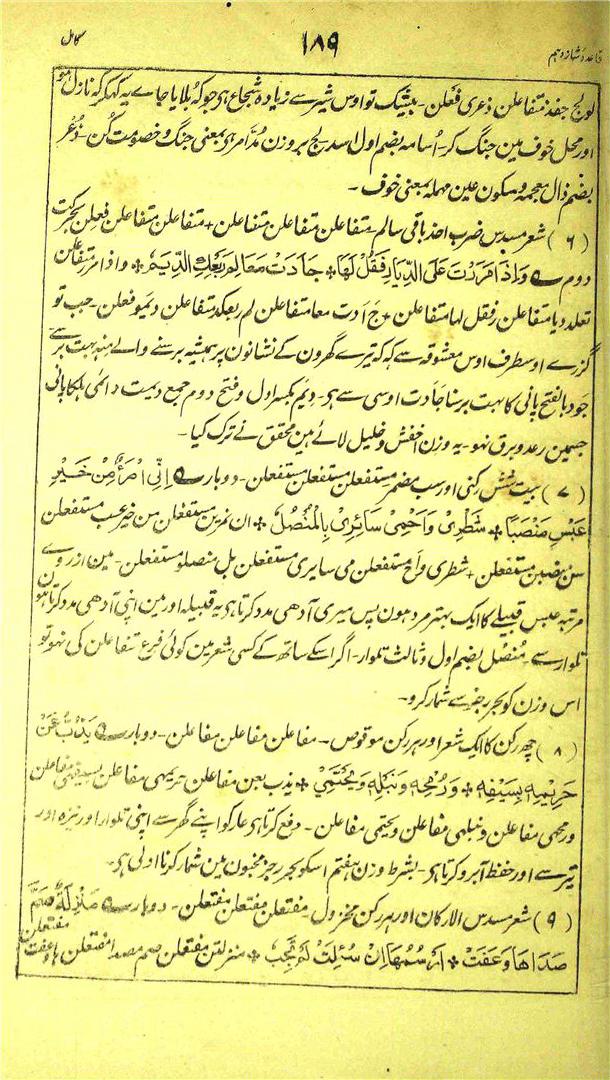 قاعدہ شانزدہم ۱۸۹ کامل
لولج جفذ متفاعلن ذعری فعْلن۔ بیشک تو اوس شیر سے زیادہ شجاع ہی جو کہ بُلایا جاے یہ کہکر کہ نازل ہو
اور محل خوف مین جنگ کر۔ اُسامہ بضم اول اسد لج بروزن مُدّ امر ہی بمعنی جنگ و خصومت کُن۔ ذُعْر
بضم ذال معجمہ و سکون عین مہملہ بمعنی خوف۔
(۶) شعر مسدس ضرب احذ باقی سالم متفاعلن متفاعلن متفاعلن + متفاعلن متفاعلن فعِلن بحرکت
دوم وَاِذَا مَرَرْتَ عَلَی الدِّیَارِ فَقُلْ لَهَا * جَادَتْ مَعَالِمَ رَبْعِكِ الدِّیَمُ * واذا مررْ متفاعلن
تعلدِ دیا متفاعلن رفقل لہا متفاعلن + جَادت معا متفاعلن لم ربعکد متفاعلن دیمو فعلن۔ جب تو
گزرے اوسطرف اوس معشوقہ سے کہ کہ تیرے گھرون کے نشانون پر ہمیشہ برسنے والے مینہ بہت برسے
جود بالفتح پانی کا بہت برسنا جادت اوسی سے ہی۔ دیَم بکسر اول و فتح دوم جمع دیمت دائمی ہلکا پانی
جسمین رعد و برق نہو۔ یہ وزن اخفش و خلیل لائے ہین محقق نے ترک کیا۔
(۷) بیت شش رکنی اور سب مضمر مستفعلن مستفعلن مستفعلن۔ دوبار اِنِّیْ امْرَؤٌ مِنْ خَیْرِ
عَبْسٍ مَنْصَبًا * شَطْرِیْ وَاَحْمِیْ سَائِرِیْ بِالْمُنْصُلِ * ان نمرین مستفعلن من خیر عب مستفعلن
سن بضبن مستفعلن + شطری و اح مستفعلن می سایری مستفعلن بل منصلو مستفعلن۔ مین از روے
مرتبہ عبس قبیلے کا ایک بہتر مرد ہون پس میری آدھی مدد کرتا ہی یہ قبیلہ اور مین اپنی آدھی مدد کرتا ہون
تلوار سے۔ مُنصُل بضم اول و ثالث تلوار۔ اگر اسکے ساتھ کے کسی شعر مین کوئی فرع متفاعلن کی نہو تو
اس وزن کو بحر رجز سے شمار کرو۔
(۸) چھہ رکن کا ایک شعر اور ہر رکن موقوص۔ مفاعلن مفاعلن مفاعلن۔ دوبار یَذُبُّ عَنْ
حَرِیْمِهٖ بِسَیْفِهٖ * وَرُمْحِهٖ وَنَبْلِهٖ وَیَحْتَمِیْ * یذب بعن مفاعلن حریمہی مفاعلن بسیفہی مفاعلن
ورمحہی مفاعلن ونبلہی مفاعلن ویحتمی مفاعلن۔ دفع کرتا ہی عار کو اپنے گھر سے اپنی تلوار اور نیزہ اور
تیر سے اور حفظ آبرو کرتا ہی۔ بشرط وزن ہفتم اسکو بحر رجز مخبون مین شمار کرنا اولٰی ہی۔
(۹) شعر مسدس الارکان اور ہر رکن مخزول مفتعلن مفتعلن مفتعلن۔ دوبار مَنْزِلَةٌ صَمَّ
صَدَاهَا وَعَفَتْ * اَرْسُمُهَا اِنْ سُئِلَتْ لَمْ تُجِبْ * منزلتن مفتعلن صمم صدا مفتعلن ہاوعفت مفتعلن